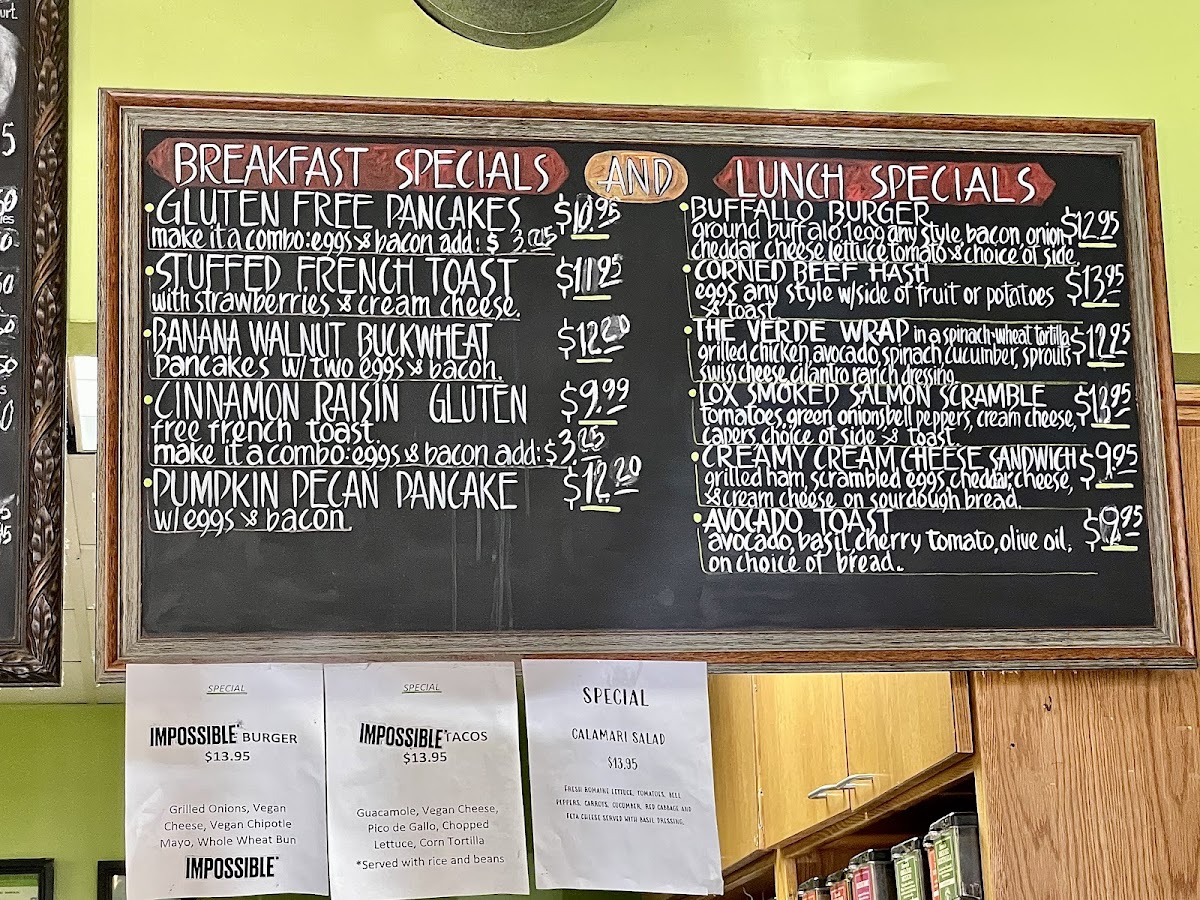 BREAKFAST SPECIALS AND LUNCH SPECIALS
GLUTEN FREE PANCAKES $10.95
make it a combo: eggs & bacon add: $
STUFFED FRENCH TOAST $11.95
with strawberries & cream cheese.
BANANA WALNUT BUCKWHEAT $12.20
pancakes w/ two eggs & bacon.
CINNAMON RAISIN GLUTEN $9.99
free french toast.
make it a combo: eggs & bacon add: $3.25
PUMPKIN PECAN PANCAKE $12.20
w/ eggs & bacon
BUFFALLO BURGER $12.95
ground buffalo 1 egg any style bacon, onion
cheddar cheese lettuce tomato & choice of side.
CORNED BEEF HASH $13.95
eggs any style w/side of fruit or potatoes
& toast.
THE VERDE WRAP in a spinach-wheat tortilla $12.95
grilled chicken, avocado, spinach, cucumber, sprouts
swiss cheese, cilantro ranch dressing.
LOX SMOKED SALMON SCRAMBLE $13.95
tomatoes, green onions, bell peppers, cream cheese,
capers, choice of side & toast.
CREAMY CREAM CHEESE SANDWICH $9.95
grilled ham, scrambled eggs, cheddar, cheese,
& cream cheese on sourdough bread.
AVOCADO TOAST $9.95
avocado, basil, cherry tomato, olive oil,
on choice of bread.
SPECIAL
IMPOSSIBLE BURGER
$13.95
Grilled Onions, Vegan
Cheese, Vegan Chipotle
Mayo, Whole Wheat Bun
IMPOSSIBLE
SPECIAL
IMPOSSIBLE TACOS
$13.95
Guacamole, Vegan Cheese,
Pico de Gallo, Chopped
Lettuce, Corn Tortilla
*Served with rice and beans
SPECIAL
CALAMARI SALAD
$13.95
FRESH ROMAINE LETTUCE, TOMATOES, BELL
PEPPERS, CARROTS, CUCUMBER, RED CABBAGE AND
FETA CHEESE SERVED WITH BASIL DRESSING.